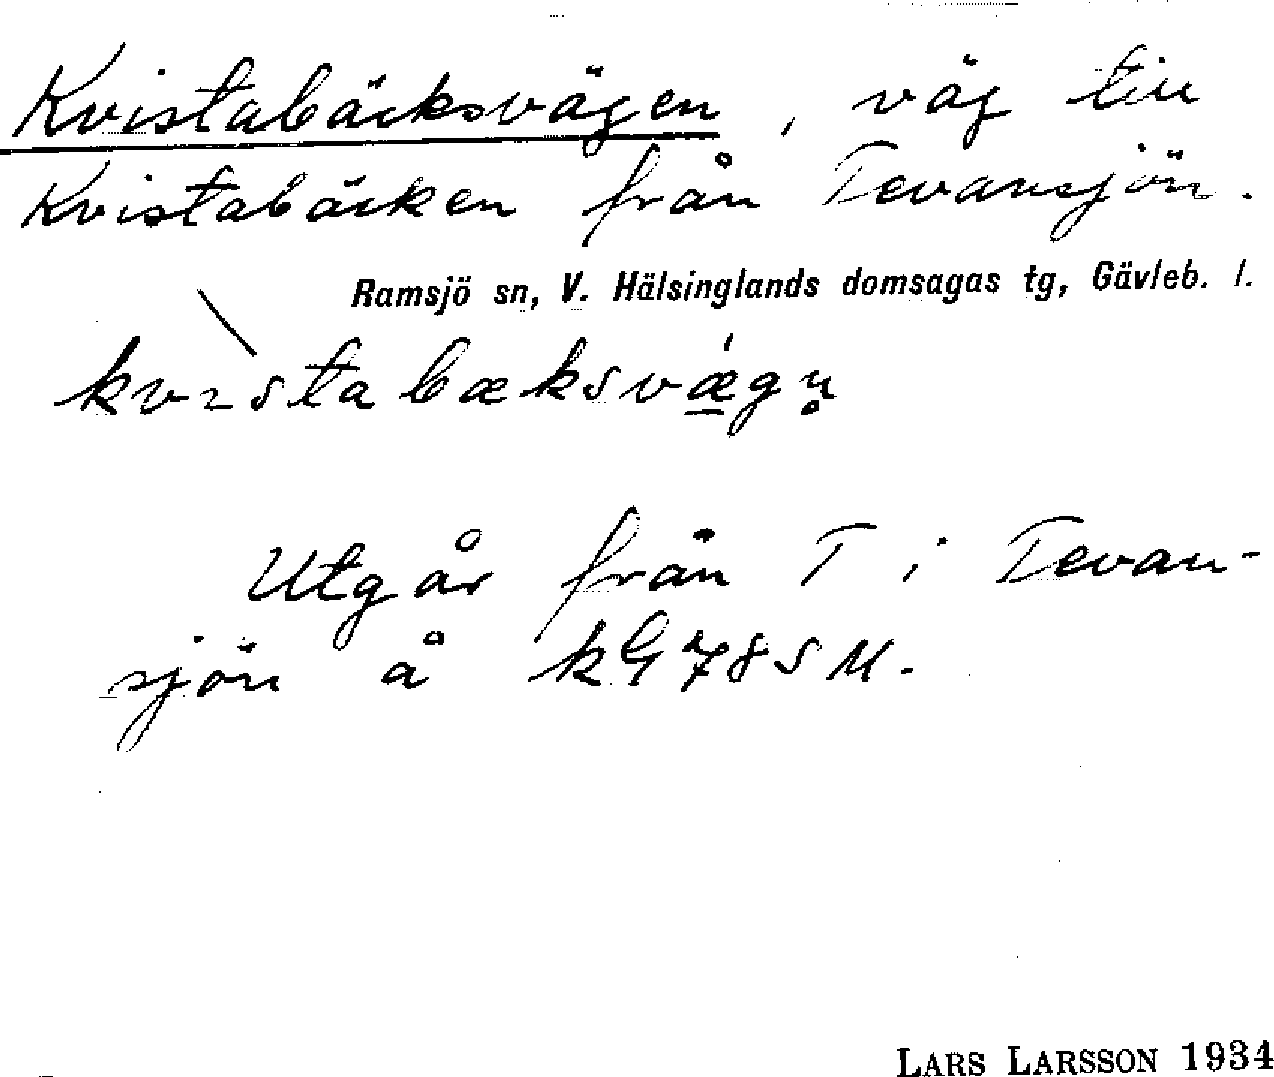 Kvistabäcksvägen, väg till
Kvistabäcken från Tevansjön.
Ramsjö sn, V. Hälsinglands domsagas tg, Gävleb. l.
kvɪ̀stabæksvǽ̠gn̥
Utgår från T i Tevan-
sjön å kG 785 M.
LARS LARSSON 1934